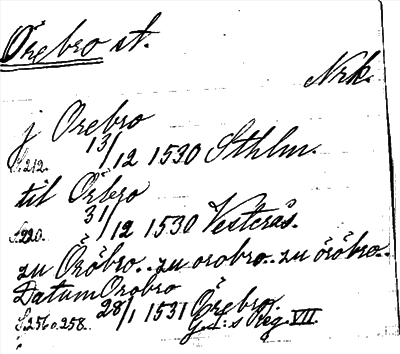 Örebro st.
Nrk.
j Orebro
13/12 1530 Sthlm.
S. 212.
til Örbro
31/12 1530 Vesterås.
S. 220.
zu Öröbro.. zu orobro.. zu öröbro..
Datum Orobro
28/1 1531 Örebro.
S. 256 o. 258. G. I: s Reg. VII.